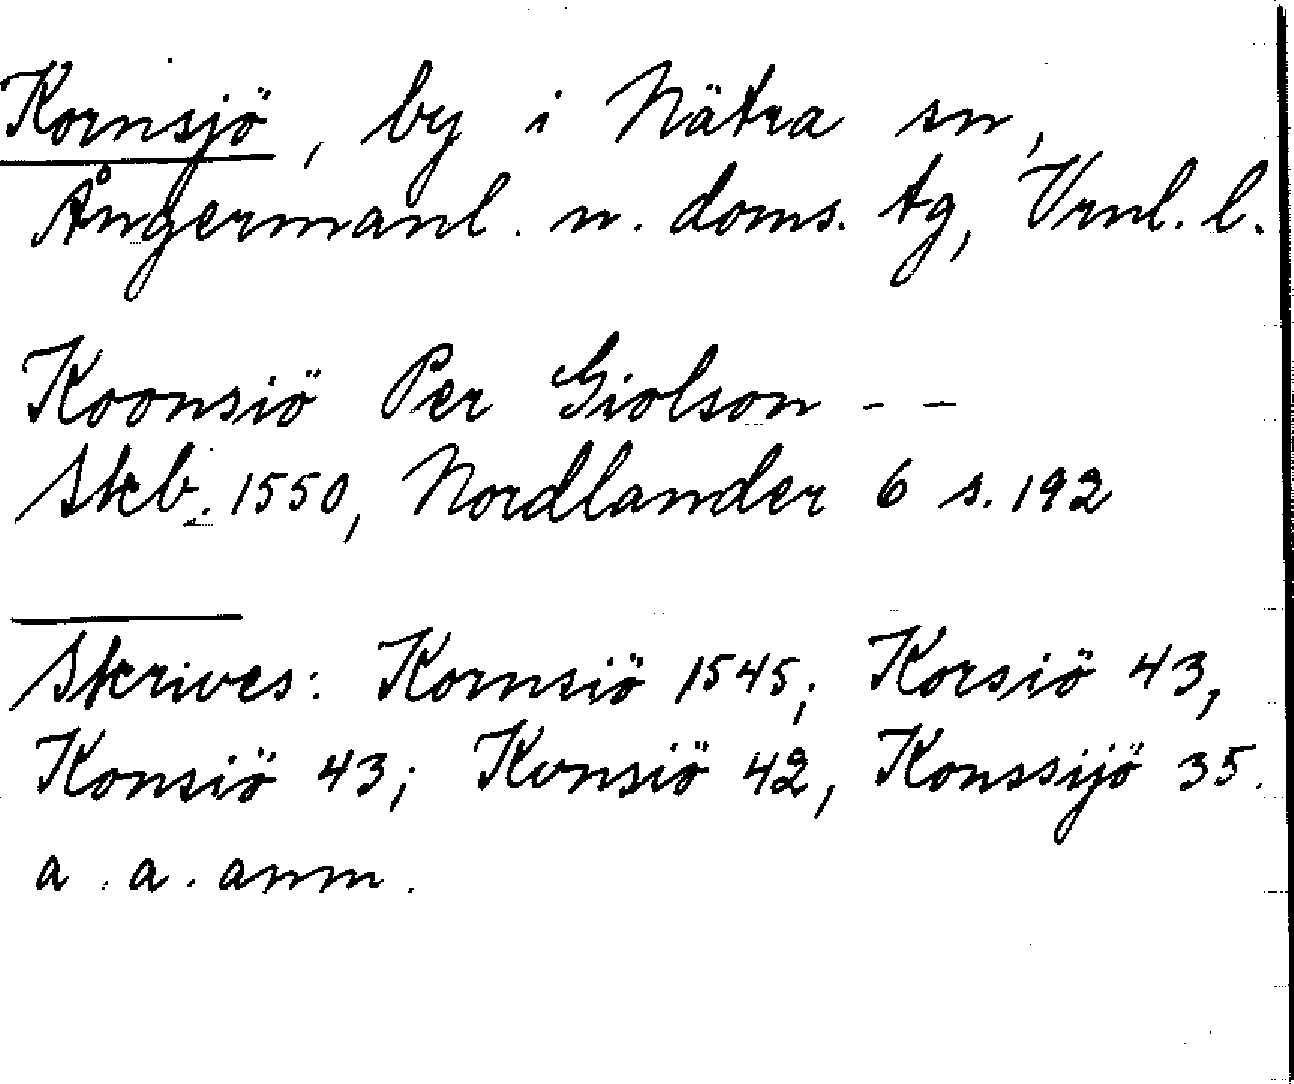 Kornsjö, by i Nätra sn,
Ångermanl. n. doms. tg, Vrnl. l.
Koonsiö Per Giolson - -
Skb. 1550, Nordlander 6 s. 192
Skrives: Kornsiö 1545; Korsiö 43,
Konsiö 43; Konsiö 42, Konssijö 35.
a. a. anm.